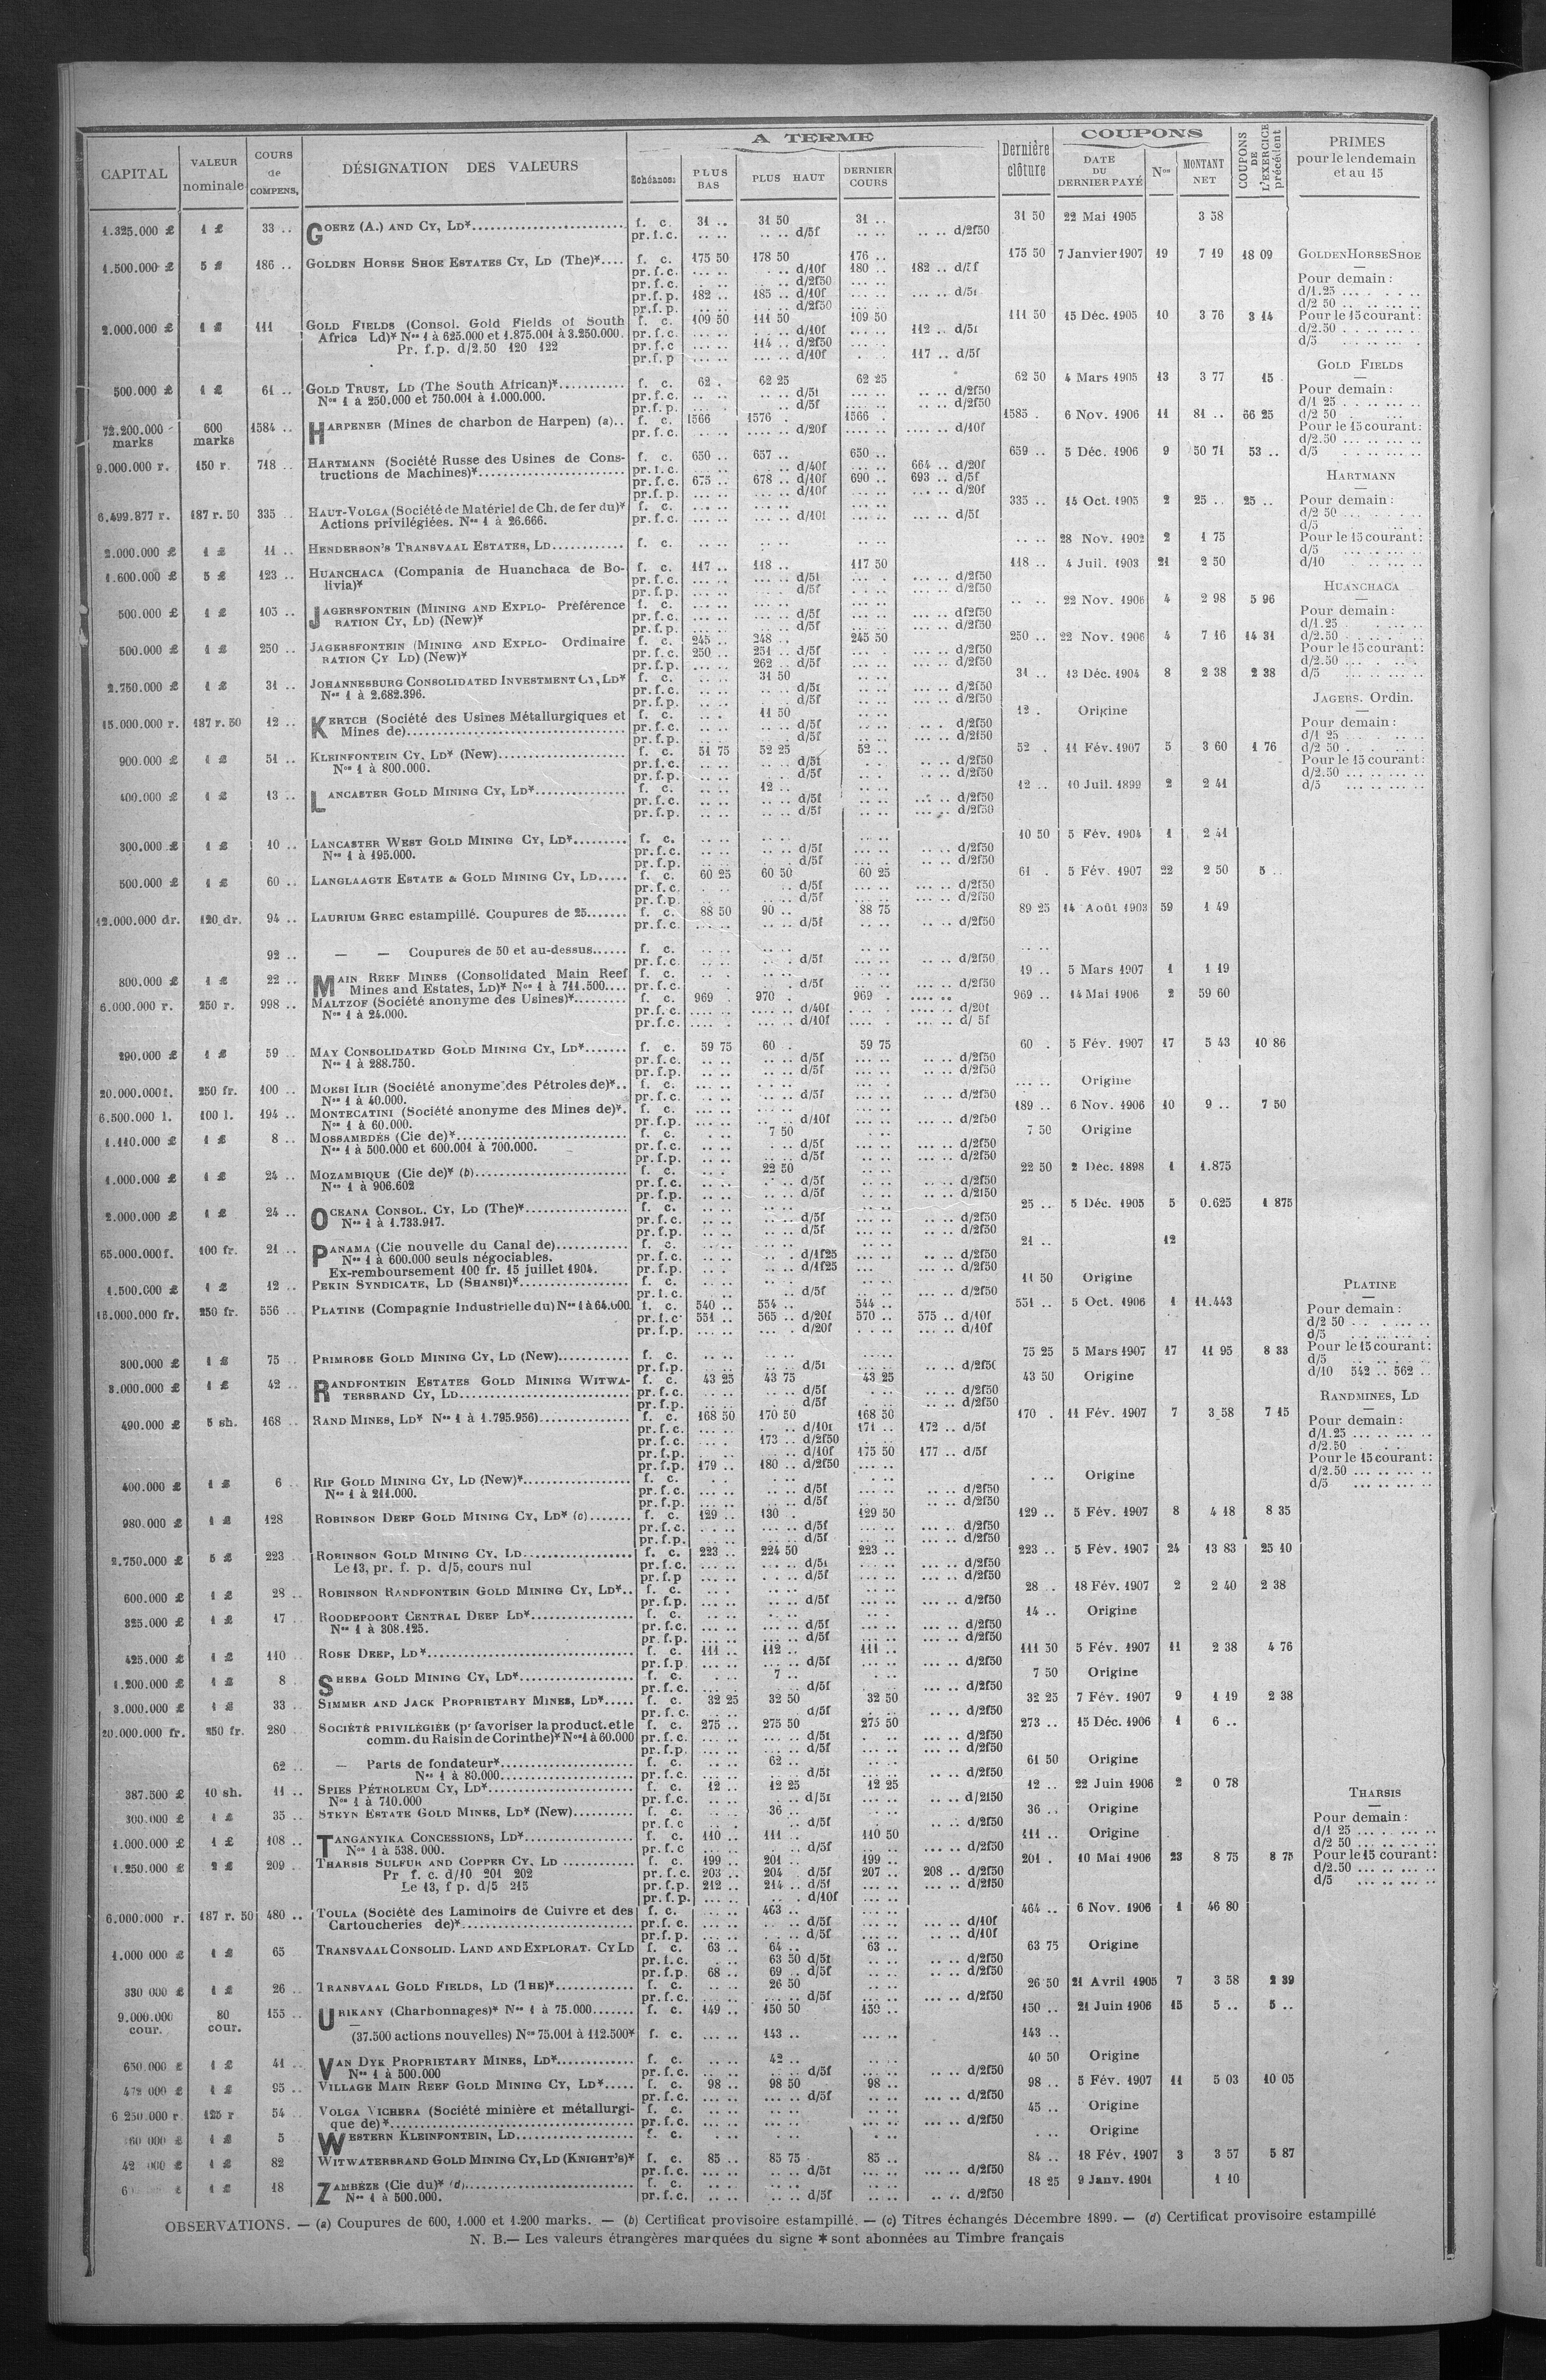 CAPITAL | VALEUR nominale | COURS de COMPENS, | DÉSIGNATION DES VALEURS | A TERME | Dernière clôture | COUPONS | COUPONS DE L'EXERCICE précédent | PRIMES pour le lendemain et au 15
Echéances | PLUS BAS | PLUS HAUT | DERNIER COURS | DATE DU DERNIER PAYÉ | Nos | MONTANT NET
1.325.000 £ | 1 £ | 33 .. | GOERZ (A.) AND CY, LD* | f. c. | 31 .. | 31 50 | 31 .. | 31 50 | 22 Mai 1905 | 3 58
pr.f.c. | .. .. | .. .. d/5f | .. .. | .. .. d/2f50
1.500.000 £ | 5 £ | 186 .. | GOLDEN HORSE SHOE ESTATES CY, LD (The)* | f. c. | 175 50 | 178 50 | 176 .. | 175 50 | 7 Janvier 1907 | 19 | 7 19 | 18 09 | GOLDEN HORSE SHOE
pr.f.c. | d/10f | 180 .. | 182 .. d/5f | Pour demain :
pr.f.c. | d/2f50 | d/1.25
pr.f.p. | 182 .. | 185 .. d/10f | d/5f | d/2 50
pr.f.p. | d/2f50
2.000.000 £ | 1 £ | 111 | GOLD FIELDS (Consol. Gold Fields of South | f. c. | 109 50 | 111 50 | 109 50 | 111 50 | 15 Déc. 1905 | 10 | 3 76 | 3 14 | Pour le 15 courant :
Africa Ld)* Nos 1 à 625.000 et 1.875.001 à 3.250.000. | pr.f.c. | d/10f | 112 .. d/5f | d/2.50
Pr. f.p. d/2.50 120 122 | pr.f.c | 114 .. d/2f50 | d/5
pr.f.p | d/10f | 117 .. d/5f
GOLD FIELDS
500.000 £ | 1 £ | 61 .. | GOLD TRUST, LD (The South African)* | f. c. | 62 . | 62 25 | 62 25 | 62 50 | 4 Mars 1905 | 13 | 3 77 | 15 | Pour demain :
Nos 1 à 250.000 et 750.001 à 1.000.000. | pr.f.c. | d/5f | d/2f50 | d/1 25
pr.f.p. | d/5f | d/2f50 | d/2 50
72.200.000 marks | 600 marks | 1584 .. | HARPENER (Mines de charbon de Harpen) (a).. | f. c. | 1566 | 1576 . | 1566 . | 1585 . | 6 Nov. 1906 | 11 | 81 .. | 66 25 | Pour le 15 courant :
pr.f.c. | d/20f | d/10f | d/2.50
9.000.000 r. | 150 r. | 718 .. | HARTMANN (Société Russe des Usines de Cons- | f. c. | 650 .. | 657 .. | 650 .. | 659 .. | 5 Déc. 1906 | 9 | 50 71 | 53 .. | d/5
tructions de Machines)* | pr.f.c. | d/40f | 664 .. d/20f
pr.f.c. | 675 .. | 678 .. d/10f | 690 .. | 693 .. d/5f | HARTMANN
pr.f.p. | d/10f | d/20f
6.499.877 r. | 187 r. 50 | 335 .. | HAUT-VOLGA (Société de Matériel de Ch. de fer du)* | f. c. | 335 .. | 14 Oct. 1905 | 2 | 25 .. | 25 .. | Pour demain :
Actions privilégiées. Nos 1 à 26.666. | pr.f.c. | d/10f | d/5f | d/2 50
d/5
2.000.000 £ | 1 £ | 11 .. | HENDERSON'S TRANSVAAL ESTATES, LD | f. c. | 28 Nov. 1902 | 2 | 1 75 | Pour le 15 courant :
d/5
1.600.000 £ | 5 £ | 123 .. | HUANCHACA (Compania de Huanchaca de Bo- | f. c. | 117 .. | 118 .. | 117 50 | 118 .. | 4 Juil. 1903 | 21 | 2 50 | d/10
livia)* | pr.f.c. | d/5f | d/2f50
pr.f.p. | d/5f | d/2f50 | HUANCHACA
500.000 £ | 1 £ | 105 .. | JAGERSFONTEIN (MINING AND EXPLO- Préférence | f. c. | 22 Nov. 1906 | 4 | 2 98 | 5 96 | Pour demain :
RATION CY, LD) (New)* | pr.f.c. | d/5f | d/2f50 | d/1.25
pr.f.p. | d/5f | d/2f50
500.000 £ | 1 £ | 250 .. | JAGERSFONTEIN (MINING AND EXPLO- Ordinaire | f. c. | 245 .. | 248 .. | 245 50 | 250 .. | 22 Nov. 1906 | 4 | 7 16 | 14 31 | d/2.50
RATION CY LD) (New)* | pr.f.c. | 250 .. | 251 .. d/5f | d/2f50 | Pour le 15 courant :
pr.f.p. | 262 .. d/5f | d/2f50 | d/2.50
2.750.000 £ | 1 £ | 31 .. | JOHANNESBURG CONSOLIDATED INVESTMENT CY, LD* | f. c. | 31 50 | 31 .. | 13 Déc. 1904 | 8 | 2 38 | 2 38 | d/5
Nos 1 à 2.682.396. | pr.f.c. | d/5f | d/2f50
pr.f.p. | d/5f | d/2f50 | JAGERS. Ordin.
15.000.000 r. | 187 r. 50 | 12 .. | KERTCH (Société des Usines Métallurgiques et | f. c. | 11 50 | 12 . | Origine | Pour demain :
Mines de) | pr.f.c. | d/5f | d/2f50 | d/1 25
pr.f.p. | d/5f | d/2f50
900.000 £ | 1 £ | 51 .. | KLEINFONTEIN CY, LD* (New) | f. c. | 51 75 | 52 25 | 52 .. | 52 . | 11 Fév. 1907 | 5 | 3 60 | 1 76 | d/2 50
Nos 1 à 800.000. | pr.f.c. | d/5f | d/2f50 | Pour le 15 courant :
pr.f.p. | d/5f | d/2f50 | d/2.50
400.000 £ | 1 £ | 13 .. | LANCASTER GOLD MINING CY, LD* | f. c. | 12 .. | 12 .. | 10 Juil. 1899 | 2 | 2 41 | d/5
pr.f.c. | d/5f | d/2f50
pr.f.p. | d/5f | d/2f50
300.000 £ | 1 £ | 10 .. | LANCASTER WEST GOLD MINING CY, LD* | f. c. | 10 50 | 5 Fév. 1904 | 1 | 2 41
Nos 1 à 195.000. | pr.f.c. | d/5f | d/2f50
pr.f.p. | d/5f | d/2f50
500.000 £ | 1 £ | 60 .. | LANGLAAGTE ESTATE & GOLD MINING CY, LD | f. c. | 60 25 | 60 50 | 60 25 | 61 . | 5 Fév. 1907 | 22 | 2 50 | 5 ..
pr.f.c. | d/5f | d/2f50
pr.f.p. | d/5f | d/2f50
12.000.000 dr. | 120 dr. | 94 .. | LAURIUM GREC estampillé. Coupures de 25 | f. c. | 88 50 | 90 .. | 88 75 | 89 25 | 14 Août 1903 | 59 | 1 49
pr.f.c. | d/5f | d/2f50
92 .. | — — Coupures de 50 et au-dessus | f. c.
pr.f.c. | d/5f | d/2f50
800.000 £ | 1 £ | 22 .. | MAIN REEF MINES (Consolidated Main Reef | f. c. | 19 .. | 5 Mars 1907 | 1 | 1 19
Mines and Estates, LD)* Nos 1 à 711.500 | pr.f.c. | d/5f | d/2f50
6.000.000 r. | 250 r. | 998 .. | MALTZOF (Société anonyme des Usines)* | f. c. | 969 . | 970 . | 969 . | 969 .. | 14 Mai 1906 | 2 | 59 60
Nos 1 à 24.000. | pr.f.c. | d/40f | d/20f
pr.f.c. | d/10f | d/ 5f
290.000 £ | 1 £ | 59 .. | MAY CONSOLIDATED GOLD MINING CY., LD* | f. c. | 59 75 | 60 . | 59 75 | 60 . | 5 Fév. 1907 | 17 | 5 43 | 10 86
Nos 1 à 288.750. | pr.f.c. | d/5f | d/2f50
pr.f.p. | d/5f | d/2f50
20.000.000 f. | 250 fr. | 100 .. | MOKSI ILIR (Société anonyme des Pétroles de)*.. | f. c. | Origine
Nos 1 à 40.000. | pr.f.c. | d/5f | d/2f50
6.500.000 l. | 100 l. | 194 .. | MONTECATINI (Société anonyme des Mines de)*. | f. c. | 189 .. | 6 Nov. 1906 | 10 | 9 .. | 7 50
Nos 1 à 60.000. | pr.f.p. | d/10f | d/2f50
1.110.000 £ | 1 £ | 8 .. | MOSSAMEDÈS (Cie de)* | f. c. | 7 50 | 7 50 | Origine
Nos 1 à 500.000 et 600.001 à 700.000. | pr.f.c. | d/5f | d/2f50
pr.f.p. | d/5f | d/2f50
1.000.000 £ | 1 £ | 24 .. | MOZAMBIQUE (Cie de)* (b) | f. c. | 22 50 | 22 50 | 2 Déc. 1898 | 1 | 1.875
Nos 1 à 906.602 | pr.f.c. | d/5f | d/2f50
pr.f.p. | d/5f | d/2f50
2.000.000 £ | 1 £ | 24 .. | OCEANA CONSOL. CY, LD (The)* | f. c. | 25 .. | 5 Déc. 1905 | 5 | 0.625 | 1 875
Nos 1 à 1.733.917. | pr.f.c. | d/5f | d/2f50
pr.f.p. | d/5f | d/2f50
65.000.000 f. | 100 fr. | 21 .. | PANAMA (Cie nouvelle du Canal de) | f. c. | 21 .. | 12
Nos 1 à 600.000 seuls négociables. | pr.f.c. | d/1f25 | d/2f50
Ex-remboursement 100 fr. 15 juillet 1904. | pr.f.p. | d/1f25 | d/2f50
1.500.000 £ | 1 £ | 12 .. | PEKIN SYNDICATE, LD (SHANSI)* | f. c. | 11 50 | Origine | PLATINE
pr.f.c. | d/5f | d/2f50
15.000.000 fr. | 250 fr. | 556 .. | PLATINE (Compagnie Industrielle du) Nos 1 à 64.000 | f. c. | 540 .. | 554 .. | 544 .. | 551 .. | 5 Oct. 1906 | 1 | 11.443 | Pour demain :
pr.f.c. | 551 .. | 565 .. d/20f | 570 .. | 575 .. d/10f | d/2 50
pr.f.p. | d/20f | d/10f | d/5
300.000 £ | 1 £ | 75 .. | PRIMROSE GOLD MINING CY, LD (New) | f. c. | 75 25 | 5 Mars 1907 | 17 | 11 95 | 8 33 | Pour le 15 courant :
pr.f.p. | d/5f | d/2f50 | d/5
3.000.000 £ | 1 £ | 42 .. | RANDFONTEIN ESTATES GOLD MINING WITWA- | f. c. | 43 25 | 43 75 | 43 25 | 43 50 | Origine | d/10 542 .. 562 ..
TERSRAND CY, LD | pr.f.c. | d/5f | d/2f50
pr.f.p. | d/5f | d/2f50 | RANDMINES, LD
490.000 £ | 5 sh. | 168 .. | RAND MINES, LD* Nos 1 à 1.795.956) | f. c. | 168 50 | 170 50 | 168 50 | 170 . | 11 Fév. 1907 | 7 | 3 58 | 7 15 | Pour demain :
pr.f.c. | d/10f | 171 .. | 172 .. d/5f | d/1.25
pr.f.c. | 173 .. d/2f50 | d/2.50
pr.f.p. | d/10f | 175 50 | 177 .. d/5f | Pour le 15 courant :
pr.f.p. | 179 .. | 180 .. d/2f50 | d/2.50
400.000 £ | 1 £ | 6 .. | RIP GOLD MINING CY, LD (New)* | f. c. | Origine | d/5
Nos 1 à 211.000. | pr.f.c. | d/5f | d/2f50
pr.f.p. | d/5f | d/2f50
980.000 £ | 1 £ | 128 | ROBINSON DEEP GOLD MINING CY, LD* (c) | f. c. | 129 .. | 130 . | 129 50 | 129 .. | 5 Fév. 1907 | 8 | 4 18 | 8 35
pr.f.c. | d/5f | d/2f50
pr.f.p. | d/5f | d/2f50
2.750.000 £ | 5 £ | 223 .. | ROBINSON GOLD MINING CY. LD | f. c. | 223 .. | 224 50 | 223 .. | 223 .. | 5 Fév. 1907 | 24 | 13 83 | 25 10
Le 13, pr. f. p. d/5, cours nul | pr.f.c. | d/5f | d/2f50
pr.f.p | d/5f | d/2f50
600.000 £ | 1 £ | 28 .. | ROBINSON RANDFONTEIN GOLD MINING CY, LD*.. | f. c. | 28 .. | 18 Fév. 1907 | 2 | 2 40 | 2 38
pr.f.p. | d/5f | d/2f50
325.000 £ | 1 £ | 17 | ROODEPOORT CENTRAL DEEP LD* | f. c. | 14 .. | Origine
Nos 1 à 308.125. | pr.f.c. | d/5f | d/2f50
pr.f.p. | d/5f | d/2f50
425.000 £ | 1 £ | 110 .. | ROSE DEEP, LD* | f. c. | 111 .. | 112 .. | 111 .. | 111 50 | 5 Fév. 1907 | 11 | 2 38 | 4 76
pr.f.p | d/5f | d/2f50
1.200.000 £ | 1 £ | 8 . | SHEBA GOLD MINING CY, LD* | f. c. | 7 .. | 7 50 | Origine
pr.f.c. | d/5f | d/2f50
3.000.000 £ | 1 £ | 33 .. | SIMMER AND JACK PROPRIETARY MINES, LD* | f. c. | 32 25 | 32 50 | 32 50 | 32 25 | 7 Fév. 1907 | 9 | 1 19 | 2 38
pr.f.c. | d/5f | d/2f50
20.000.000 fr. | 250 fr. | 280 | SOCIÉTÉ PRIVILÉGIÉE (pr favoriser la product. et le | f. c. | 275 .. | 275 50 | 275 50 | 273 .. | 15 Déc. 1906 | 1 | 6 ..
comm. du Raisin de Corinthe)* Nos 1 à 60.000 | pr.f.c. | d/5f | d/2f50
pr.f.p. | d/5f | d/2f50
62 .. | — Parts de fondateur* | f. c. | 62 .. | 61 50 | Origine
Nos 1 à 80.000 | pr.f.c. | d/5f | d/2f50
387.500 £ | 10 sh. | 11 .. | SPIES PÉTROLEUM CY, LD* | f. c. | 12 .. | 12 25 | 12 25 | 12 .. | 22 Juin 1906 | 2 | 0 78 | THARSIS
Nos 1 à 710.000 | pr.f.c. | d/5f | d/2f50
300.000 £ | 1 £ | 35 .. | STEYN ESTATE GOLD MINES, LD* (New) | f. c. | 36 .. | 36 .. | Origine | Pour demain :
pr.f.c | d/5f | d/2f50 | d/1 25
1.000.000 £ | 1 £ | 108 .. | TANGANYIKA CONCESSIONS, LD* | f. c. | 110 .. | 111 .. | 110 50 | 111 .. | Origine | d/2 50
Nos 1 à 538.000. | pr.f.c | d/5f | d/2f50
1.250.000 £ | 2 £ | 209 .. | THARSIS SULFUR AND COPPER CY. LD | f. c. | 199 .. | 201 .. | 199 .. | 201 . | 10 Mai 1906 | 23 | 8 75 | 8 75 | Pour le 15 courant :
Pr f. c. d/10 201 202 | pr.f.c. | 203 .. | 204 .. d/5f | 207 .. | 208 .. d/2f50 | d/2.50
Le 13, f p. d/5 215 | pr.f.p. | 212 .. | 214 .. d/5f | d/2f50 | d/5
pr.f.p. | d/10f
6.000.000 r. | 187 r. 50 | 480 .. | TOULA (Société des Laminoirs de Cuivre et des | f. c. | 463 .. | 464 .. | 6 Nov. 1906 | 1 | 46 80
Cartoucheries de)* | pr.f.c. | d/5f | d/10f
pr.f.p. | d/5f | d/10f
1.000 000 £ | 1 £ | 65 | TRANSVAAL CONSOLID. LAND AND EXPLORAT. CY LD | f. c. | 63 .. | 64 .. | 63 .. | 63 75 | Origine
pr.f.c. | 63 50 d/5f | d/2f50
pr.f.p. | 68 .. | 69 .. d/5f | d/2f50
330 000 £ | 1 £ | 26 .. | TRANSVAAL GOLD FIELDS, LD (THE)* | f. c. | 26 50 | 26 50 | 21 Avril 1905 | 7 | 3 58 | 2 39
pr.f.c. | d/5f | d/2f50
9.000.000 cour. | 80 cour. | 155 .. | URIKANY (Charbonnages)* Nos 1 à 75.000 | f. c. | 149 .. | 150 50 | 150 .. | 150 .. | 21 Juin 1906 | 15 | 5 .. | 5 ..
— (37.500 actions nouvelles) Nos 75.001 à 112.500* | f. c. | 143 .. | 143 ..
650.000 £ | 1 £ | 41 .. | VAN DYK PROPRIETARY MINES, LD* | f. c. | 42 .. | 40 50 | Origine
Nos 1 à 500.000 | pr.f.c. | d/5f | d/2f50
472 000 £ | 1 £ | 95 .. | VILLAGE MAIN REEF GOLD MINING CY, LD* | f. c. | 98 .. | 98 50 | 98 .. | 98 .. | 5 Fév. 1907 | 11 | 5 03 | 10 05
pr.f.c. | d/5f | d/2f50
6 250.000 r. | 125 r | 54 | VOLGA VICHERA (Société minière et métallurgi- | f. c. | 45 .. | Origine
que de)* | pr.f.c. | d/2f50
1 £ | 5 | WESTERN KLEINFONTEIN, LD | f. c. | Origine
1 £ | 82 | WITWATERSRAND GOLD MINING CY, LD (KNIGHT'S)* | f. c. | 85 .. | 85 75 | 85 .. | 84 .. | 18 Fév. 1907 | 3 | 3 57 | 5 87
pr.f.c. | d/5f | d/2f50
1 £ | 18 | ZAMBÈZE (Cie du)* (d) | f. c. | 18 25 | 9 Janv. 1901 | 1 10
Nos 1 à 500.000. | pr.f.c. | d/5f | d/2f50
OBSERVATIONS. — (a) Coupures de 600, 1.000 et 1.200 marks. — (b) Certificat provisoire estampillé. — (c) Titres échangés Décembre 1899. — (d) Certificat provisoire estampillé
N. B.— Les valeurs étrangères marquées du signe * sont abonnées au Timbre français